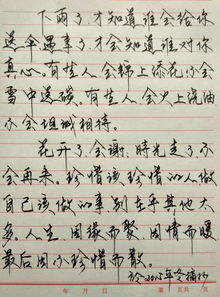 下雨了才知道谁会给你
送伞遇事了才会知道谁对你
真心。有些人会锦上添花不会
雪中送碳。有些人会火上浇油
不会坦诚相待。
花开了会谢，時光走了不
会再来，珍惜该珍惜的人做
自己该做的事，别在乎其他太
多。人生，因缘而聚，因情而暖
最后因不珍惜而散。
於2015年冬摘抄
年 月 日 第 页 共 页